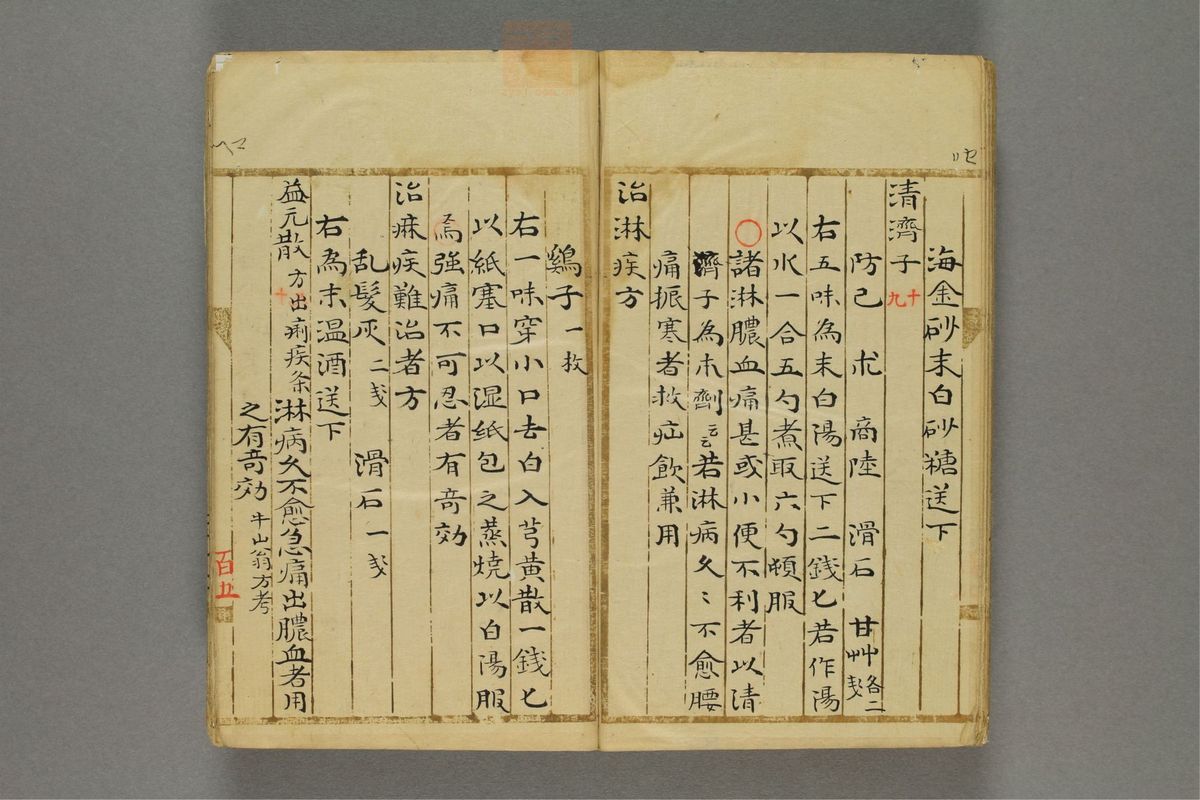 海金砂末白砂糖送下
清濟子 十九
防己 朮 商陸 滑石 甘艸各二戔
右五味為末白湯送下二錢匕若作湯
以水一合五勺煮取六勺頓服
諸淋膿血痛甚或小便不利者以清
濟子為末劑云云若淋病久〻不愈腰
痛振寒者救疝飲兼用
治淋疾方
鷄子一枚
右一味穿小口去白入芎黄散一錢匕
以紙塞口以湿纸包之蒸燒以白湯服
焉強痛不可忍者有竒効
治痳疾難治者方
乱髮灰二戔 滑石一戔
右為末温酒送下
益元散方出痢疾条淋病久不愈急痛出膿血者用
之有竒効牛山翁方考
百五